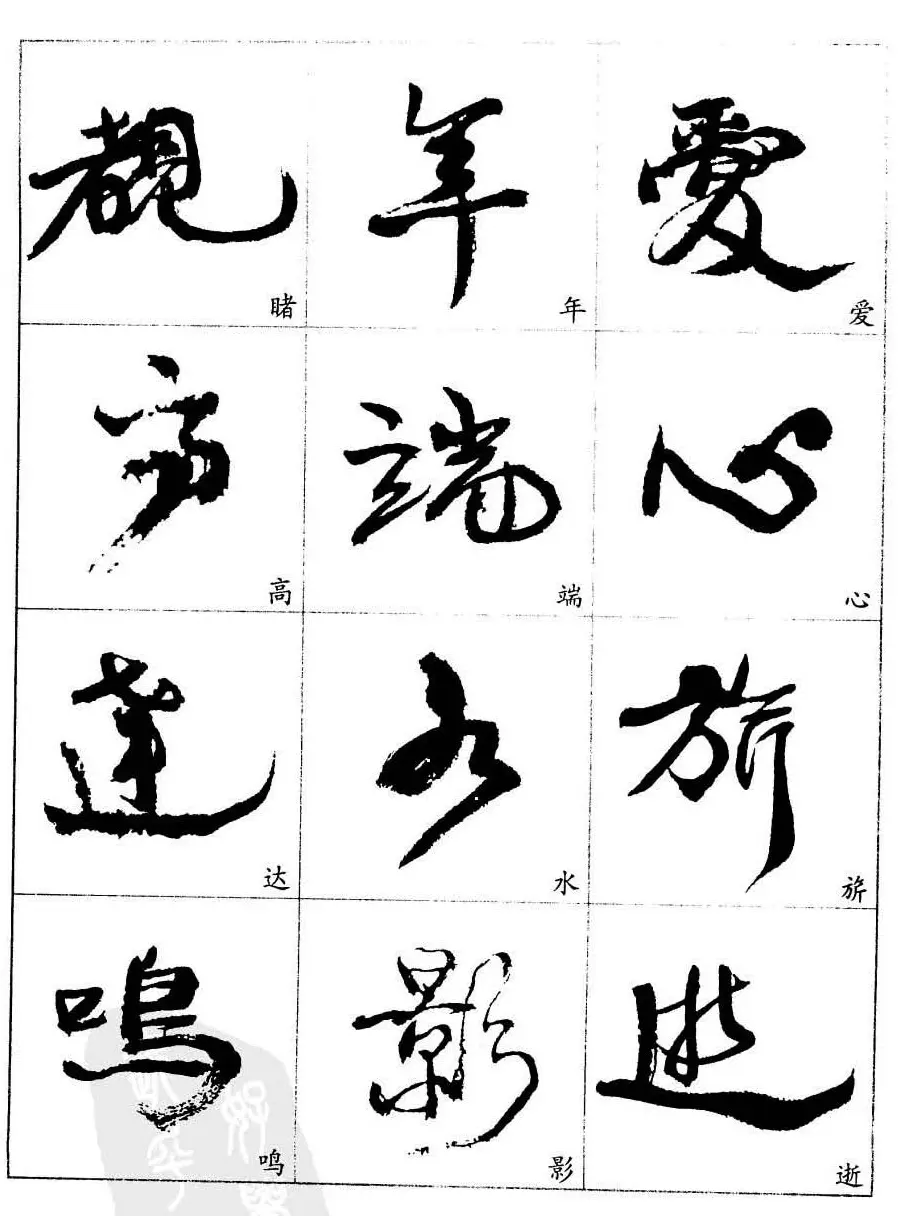 覩 年 爱
睹 年 爱
高 端 心
高 端 心
達 水 旂
达 水 旂
鳴 影 逝
鸣 影 逝